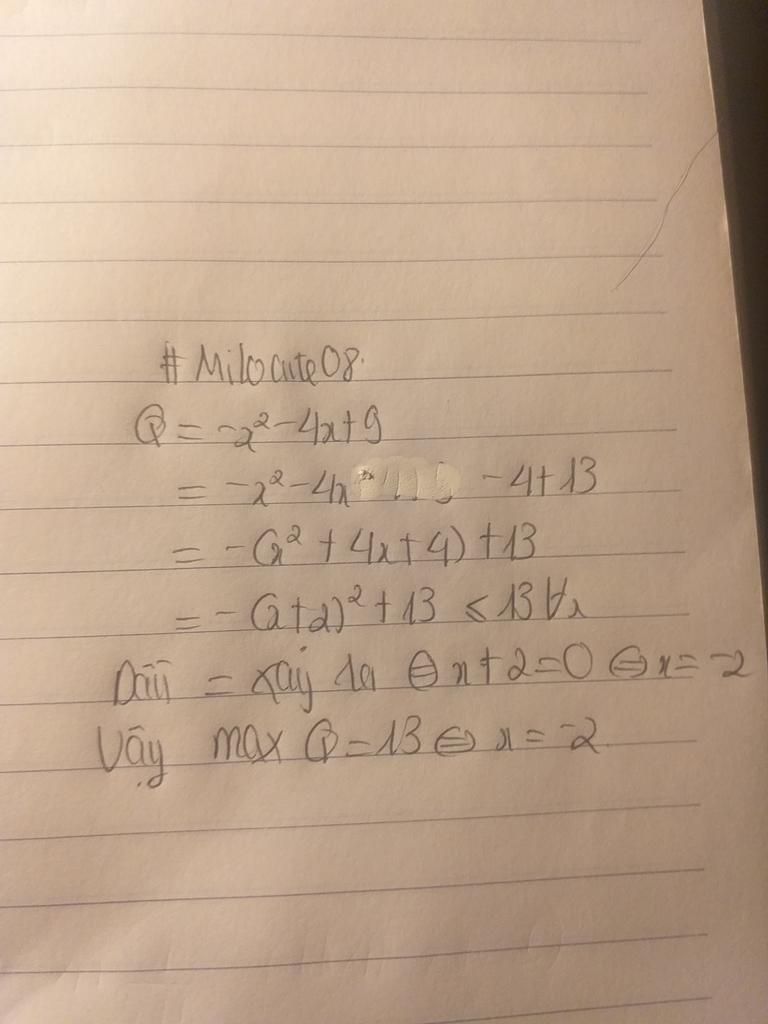 #Milocute08.
Q = -x² - 4x + 9
= -x² - 4x - 4 + 13
= -(x² + 4x + 4) + 13
= -(x + 2)² + 13 ≤ 13 ∀x
Dấu = xảy ra ⇔ x + 2 = 0 ⇔ x = -2
Vậy max Q = 13 ⇔ x = -2